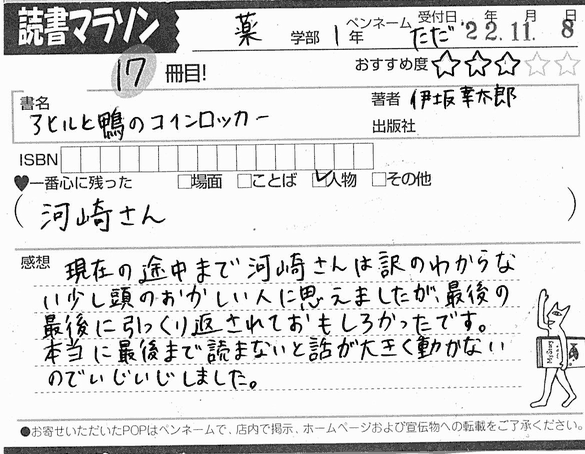 読書マラソン
薬 学部 1 年 ペンネーム ただ 受付日 '22年11月8日
17 冊目! おすすめ度 ★★★☆☆
書名 アヒルと鴨のコインロッカー
著者 伊坂幸太郎
出版社
ISBN
♥一番心に残った □場面 □ことば ☑人物 □その他
( 河崎さん )
感想
現在の途中まで河崎さんは訳のわからな
い少し頭のおかしい人に思えましたが最後の
最後に引っくり返されておもしろかったです。
本当に最後まで読まないと話が大きく動かない
のでいじいじしました。
●お寄せいただいたPOPはペンネームで、店内で掲示、ホームページおよび宣伝物への転載をご了承ください。